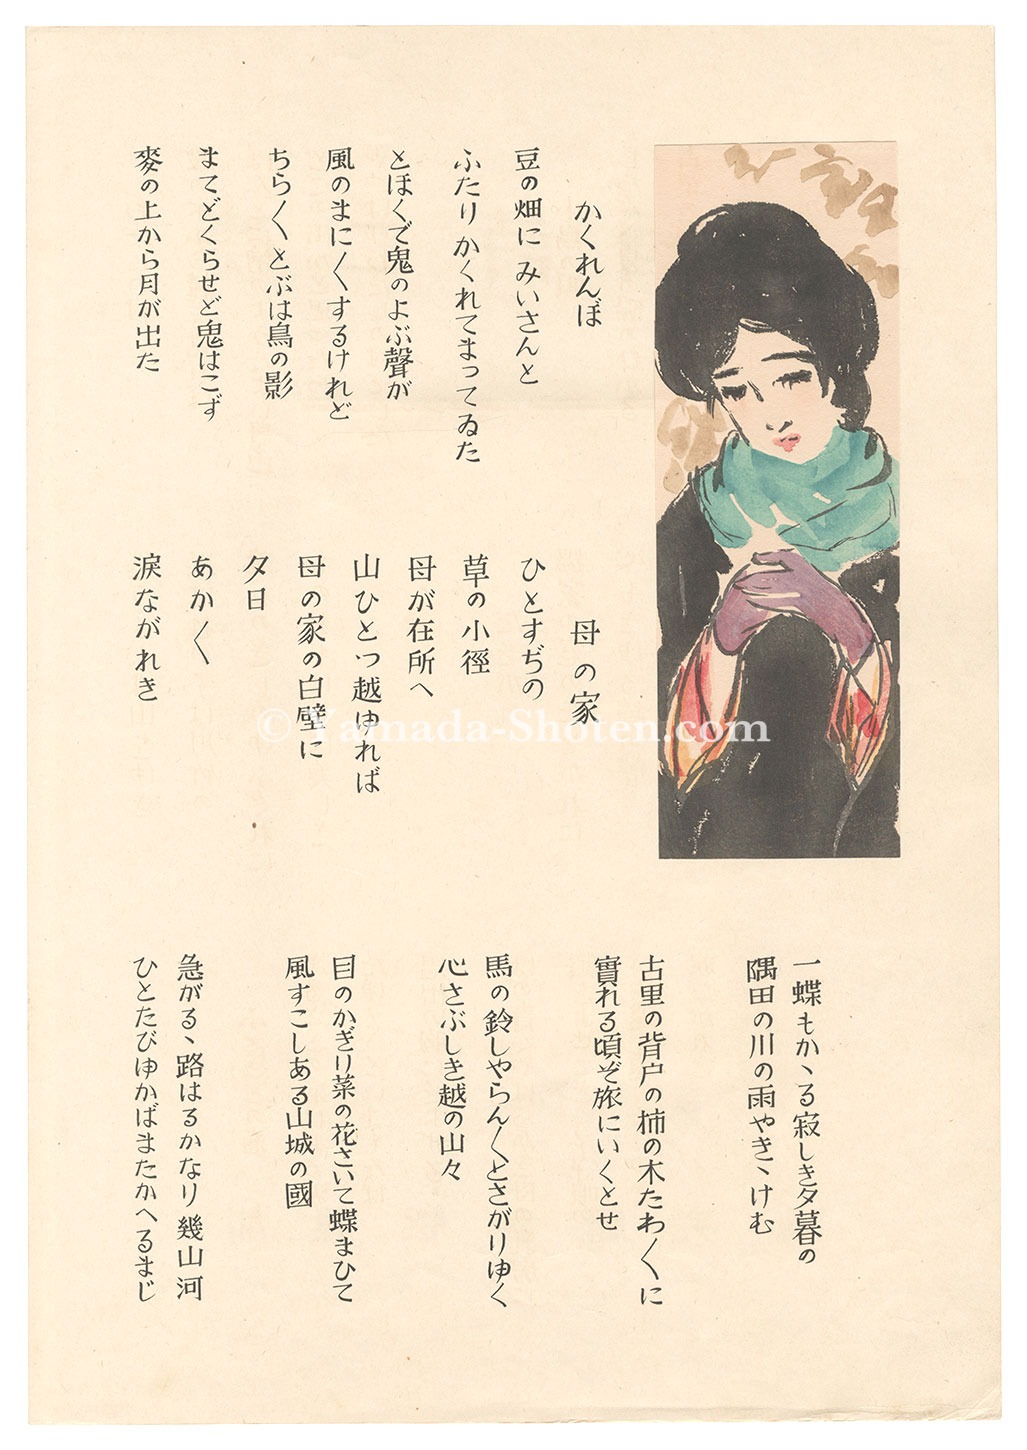 かくれんぼ
豆の畑に みいさんと
ふたりかくれてまってゐた
とほくで鬼のよぶ聲が
風のまに〱するけれど
ちら〱とぶは鳥の影
まてどくらせど鬼はこず
麥の上から月が出た
母の家
ひとすぢの
草の小徑
母が在所へ
山ひとつ越ゆれば
母の家の白壁に
夕日
あか〱
涙ながれき
一蝶もかゝる寂しき夕暮の
隅田の川の雨やきゝけむ
古里の背戸の柿の木たわ〱に
實れる頃ぞ旅にいくとせ
馬の鈴しやらん〱とさがりゆく
心さぶしき越の山々
目のかぎり菜の花さいて蝶まひて
風すこしある山城の國
急がるゝ路はるかなり 幾山河
ひとたびゆかばまたかへるまじ
© Yamada-Shoten.com